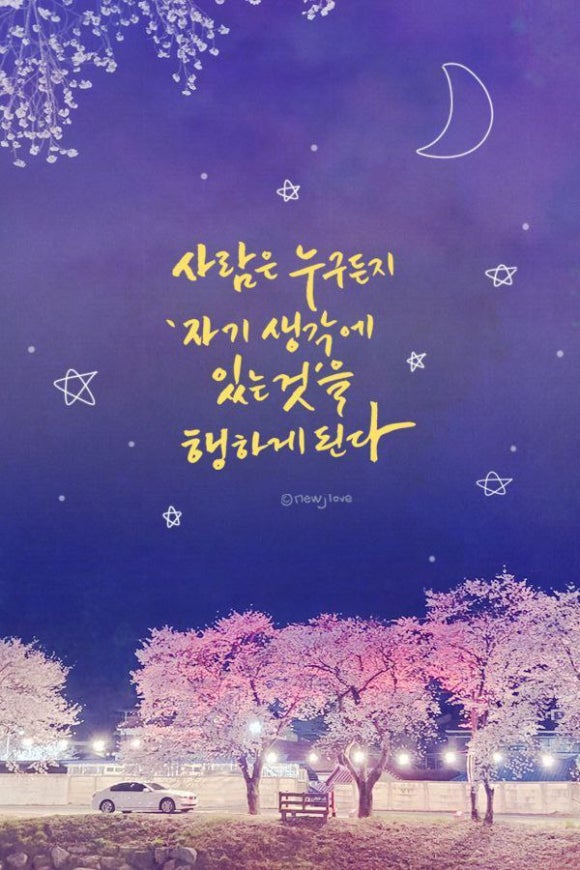 사람은 누구든지
'자기 생각에
있는것'을
행하게 된다
©newjlove